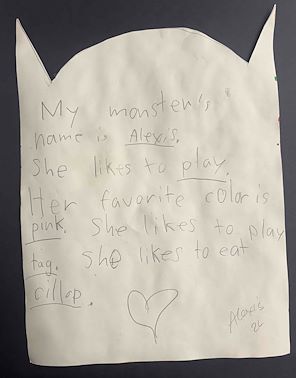 My monster's
name is Alexis.
She likes to play.
Her favorite color is
pink. She likes to play
tag. She likes to eat
cillop.
Alexis